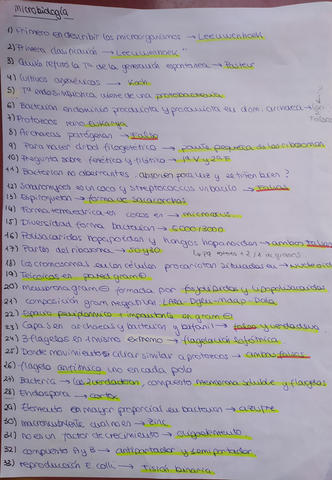 Microbiología
1) Primero en describir los microorganismos → Leeuwenhoek
2) Primera clasificación → Leeuwenhoek
3) Quién refutó la Tª de la generación espontánea → Pasteur
4) Cultivos axénicos → Koch
5) Tª endosimbiótica viene de una proteobacteria
6) Bacterian endominio procariota y procariota en dom. archaea
7) Protoctistas reino Eukarya
8) Archaeas patógenas → Falso
9) Para hacer árbol filogenético → parte pequeña de los ribosomas
10) Pregunta sobre fenética y filética → 1º V y 2º F
11) Bacterian no aberrantes absorción para luz y se tiñen bien?
12) Saccharomyces es un coco y streptococcus un bacilo → Falsas
13) Espiroquetas → forma de sacacorchos
14) Forma tetraédrica en cocos es → micrococcus
15) Diversidad forma bacterian → 5000/3000
16) Polisacaridos hopanoides y hongos hopanoides → ambas falso
17) Partes del ribosoma → 50 y 30
18) Los cromosomas en los células procariotas situadas en → nucleoide
19) Teicoicos en pared gram ⊕
20) membrana gram ⊖ formada por fosfolípidos y lipopolisacáridos
21) composición gram negativas LAla-Dglu-mdap-Dala
22) Espacio periplásmico + importante en gram ⊖
23) Capa S en archaeas y bacterian y → falsa y verdadera
24) 3 flagelos en 1 mismo extremo → flagelación lofótrica
25) Donde movimiento ciliar similar a protoctos → ambas falsas
26) flagelo anfítrico uno en cada polo
27) Bacteria → las 2 verdaderas, compuesto membrana soluble y flagelos
28) Endospora → cortex
29) Elemento en mayor proporcial en bacterian → azufre
30) micronutriente cual no es → Zinc
31) No es un factor de crecimiento → oligoelemento
32) compuesto A y B → antiportador y simportador
33) reproducción E. coli → Fisión binaria